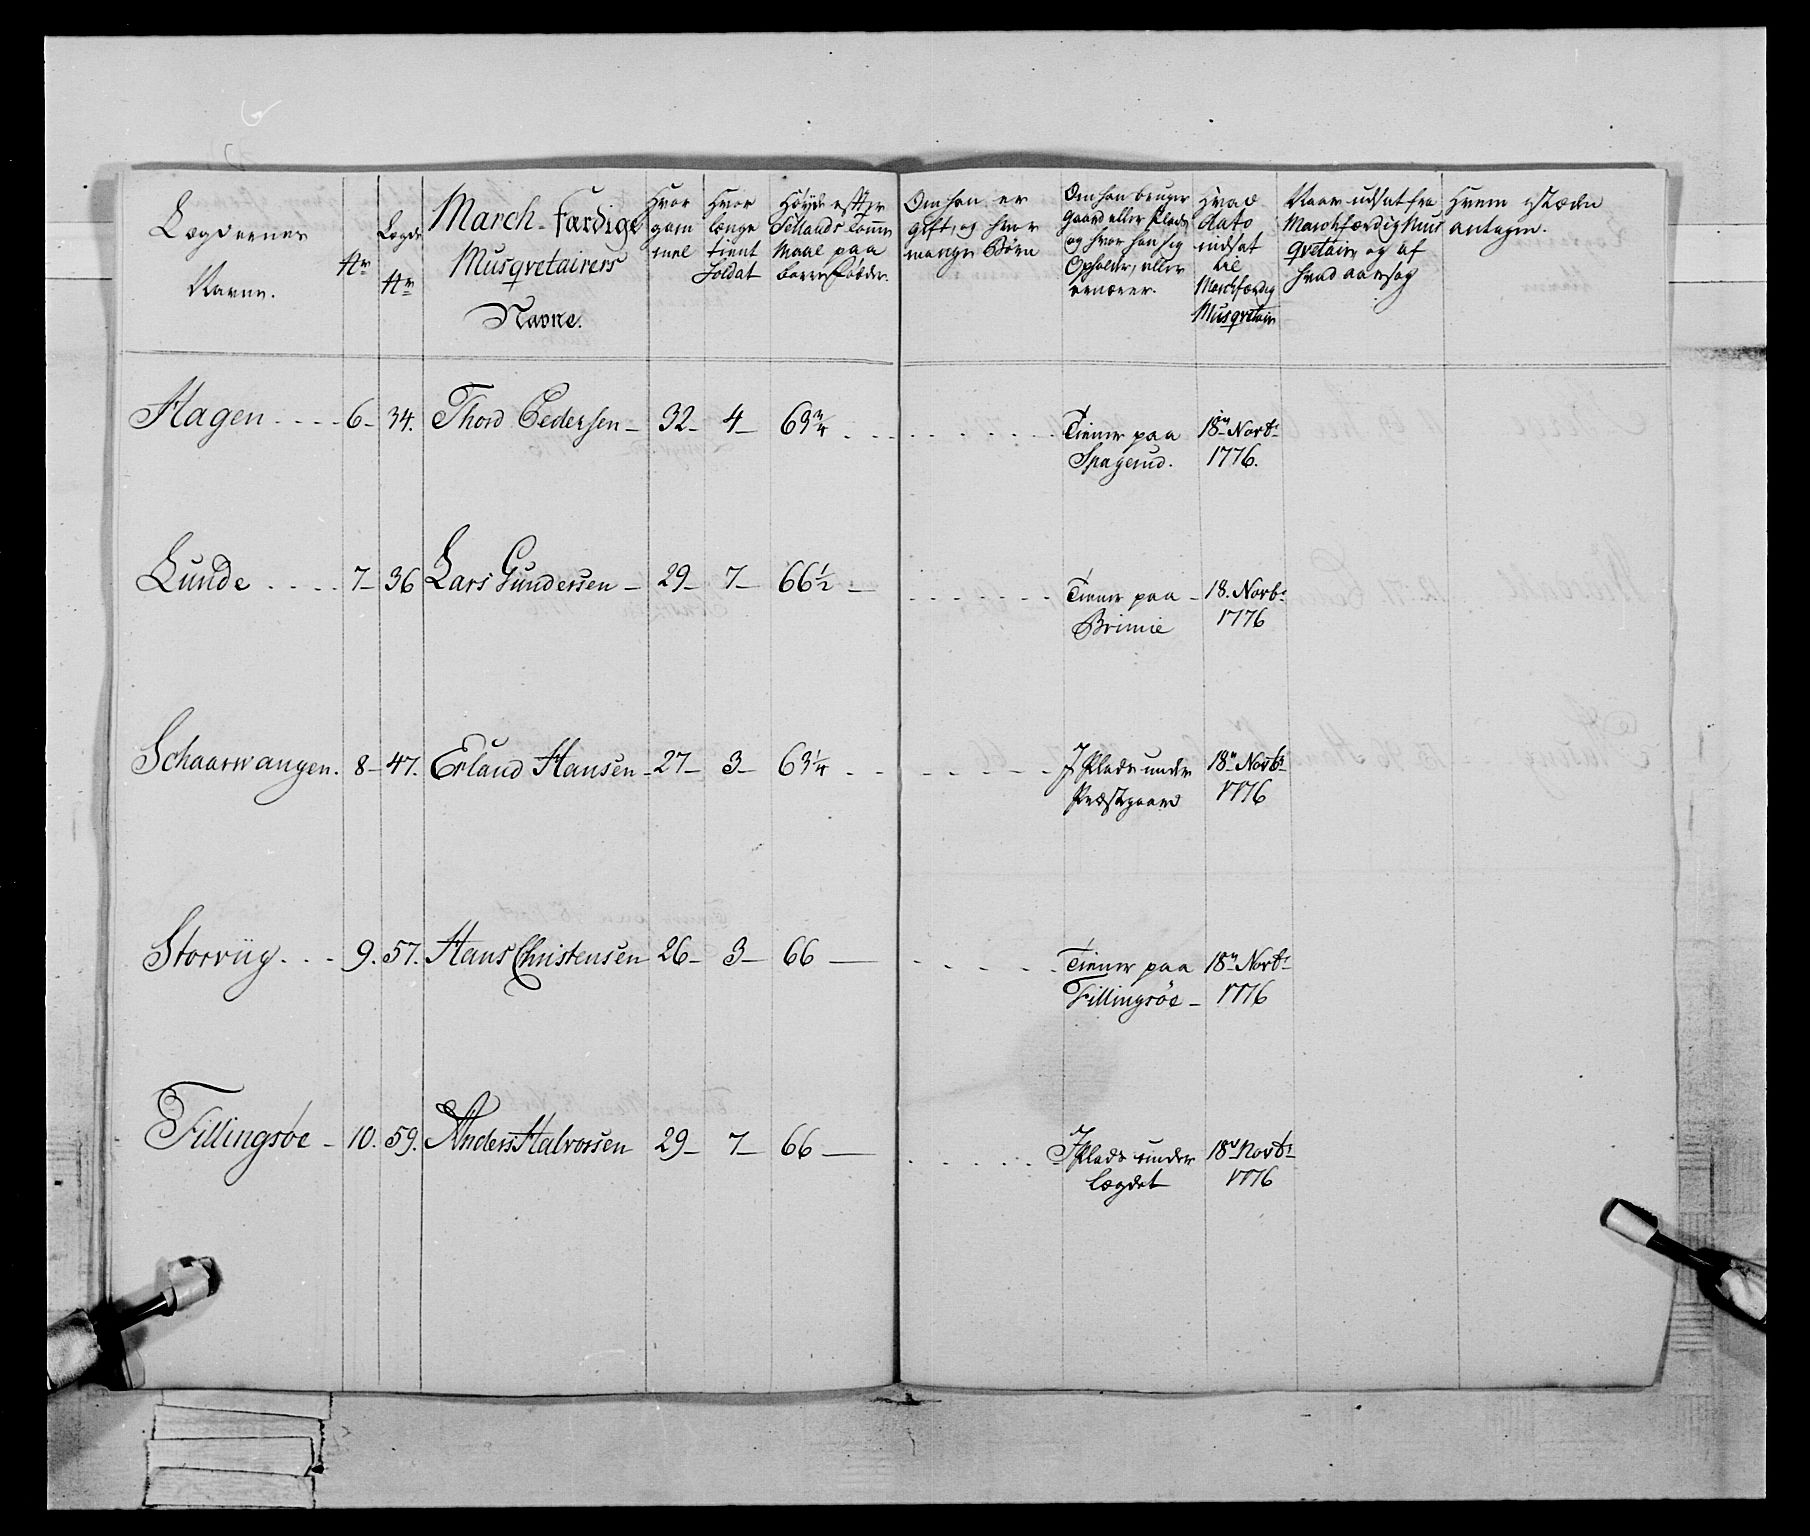 Lægdernes
Navne.
Nr
Lægde
Nr
March-færdige
Musqvetairers
Navne.
Hvor
gam
mel
Hvor
længe
tient
Soldat
Høyde efter
Sellands Tomme
Maal paa
barre Fødder.
Om han er
gift, og hvor
mange Børn
Om han bruger
gaard eller Plads
og hvor han sig
Opholder, eller
ernærer.
Hvad
dato
indsat
til
Marchfærdig
Musqvetair
Naar udsat fra
Marchfærdig Mus
qvetair og af
hvad aarsag
Hvem i Stæden
antagen.
Hagen . . . . 6 – 34. Thord Pedersen – 32 – 4 – 63 3/4 . . . . . . . . Tiener paa 18de Novbr
Spagerud. 1776.
Lunde . . . . 7 – 36 Lars Gundersen – 29 – 7 – 66 1/2 – . . . . . . Tiener paa – 18. Novbr
Brimie 1776
Schaarwangen. 8 – 47. Erland Hansen – 27 – 3 – 63 1/4 . . . . . . . . J Plads under 18de Novbr
Præstgaard 1776
Storviig . . . 9. 57. Hans Christensen 26 – 3 – 66 – . . . . . Tiener paa 18de Novbr
Fillingsøe – 1776
Fillingsøe – 10. 59. Anders Halvorsen 29 – 7 – 66 – . . . . . J Plads under 18de Novbr
Lægdet 1776